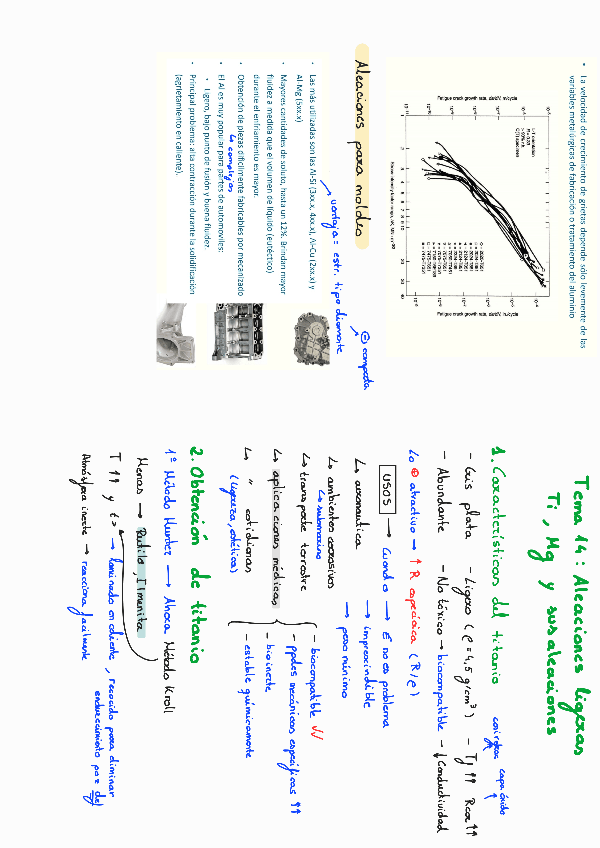 • La velocidad de crecimiento de grietas depende sólo levemente de las
variables metalúrgicas de fabricación o tratamiento del aluminio
Fatigue crack growth rate, da/dN, m/cycle
Fatigue crack growth rate, da/dN, in./cycle
Aleaciones para moldeo
• Las más utilizadas son las Al-Si (3xx.x, 4xx.x), Al-Cu (2xx.x) y
Al-Mg (5xx.x)
ventaja = estr. tipo diamante
⊖ compacta
• Mayores cantidades de soluto, hasta un 12%. Brindan mayor
fluidez a medida que el volumen de líquido (eutéctico)
durante el enfriamiento es mayor.
• Obtención de piezas difícilmente fabricables por mecanizado
↳ complejas
• El Al es muy popular para partes de automóviles:
• Ligero, bajo punto de fusión y buena fluidez
• Principal problema: alta contracción durante la solidificación
(agrietamiento en caliente).
Tema 14: Aleaciones ligeras
Ti, Mg y sus aleaciones
1. Características del titanio
capa óxido
- Gris plata - Ligero (ρ = 4,5 g/cm³) - Tf ↑↑ Rcor ↑↑
- Abundante - No tóxico → biocompatible - ↓ Conductividad
↳ ⊕ atractivo → ↑ R específica (R/ρ)
USOS → Cuando → € no es problema
↳ aeronautica → imprescindible
→ peso mínimo
↳ ambientes corrosivos
↳ submarino
↳ transporte terrestre
↳ aplicaciones médicas
- biocompatible √√
- ppdes mecánicas específicas ↑↑
- bioinerte
- estable químicamente
↳ " cotidianas
(ligereza, estética)
2. Obtención de titanio
1º Método Hunter → Ahora Método Kroll
Menas → Rutilo, Ilmenita
T ↑↑ y t > → laminado en caliente, recocido para eliminar
endurecimiento por def
Atmósfera inerte → reacciona fácilmente